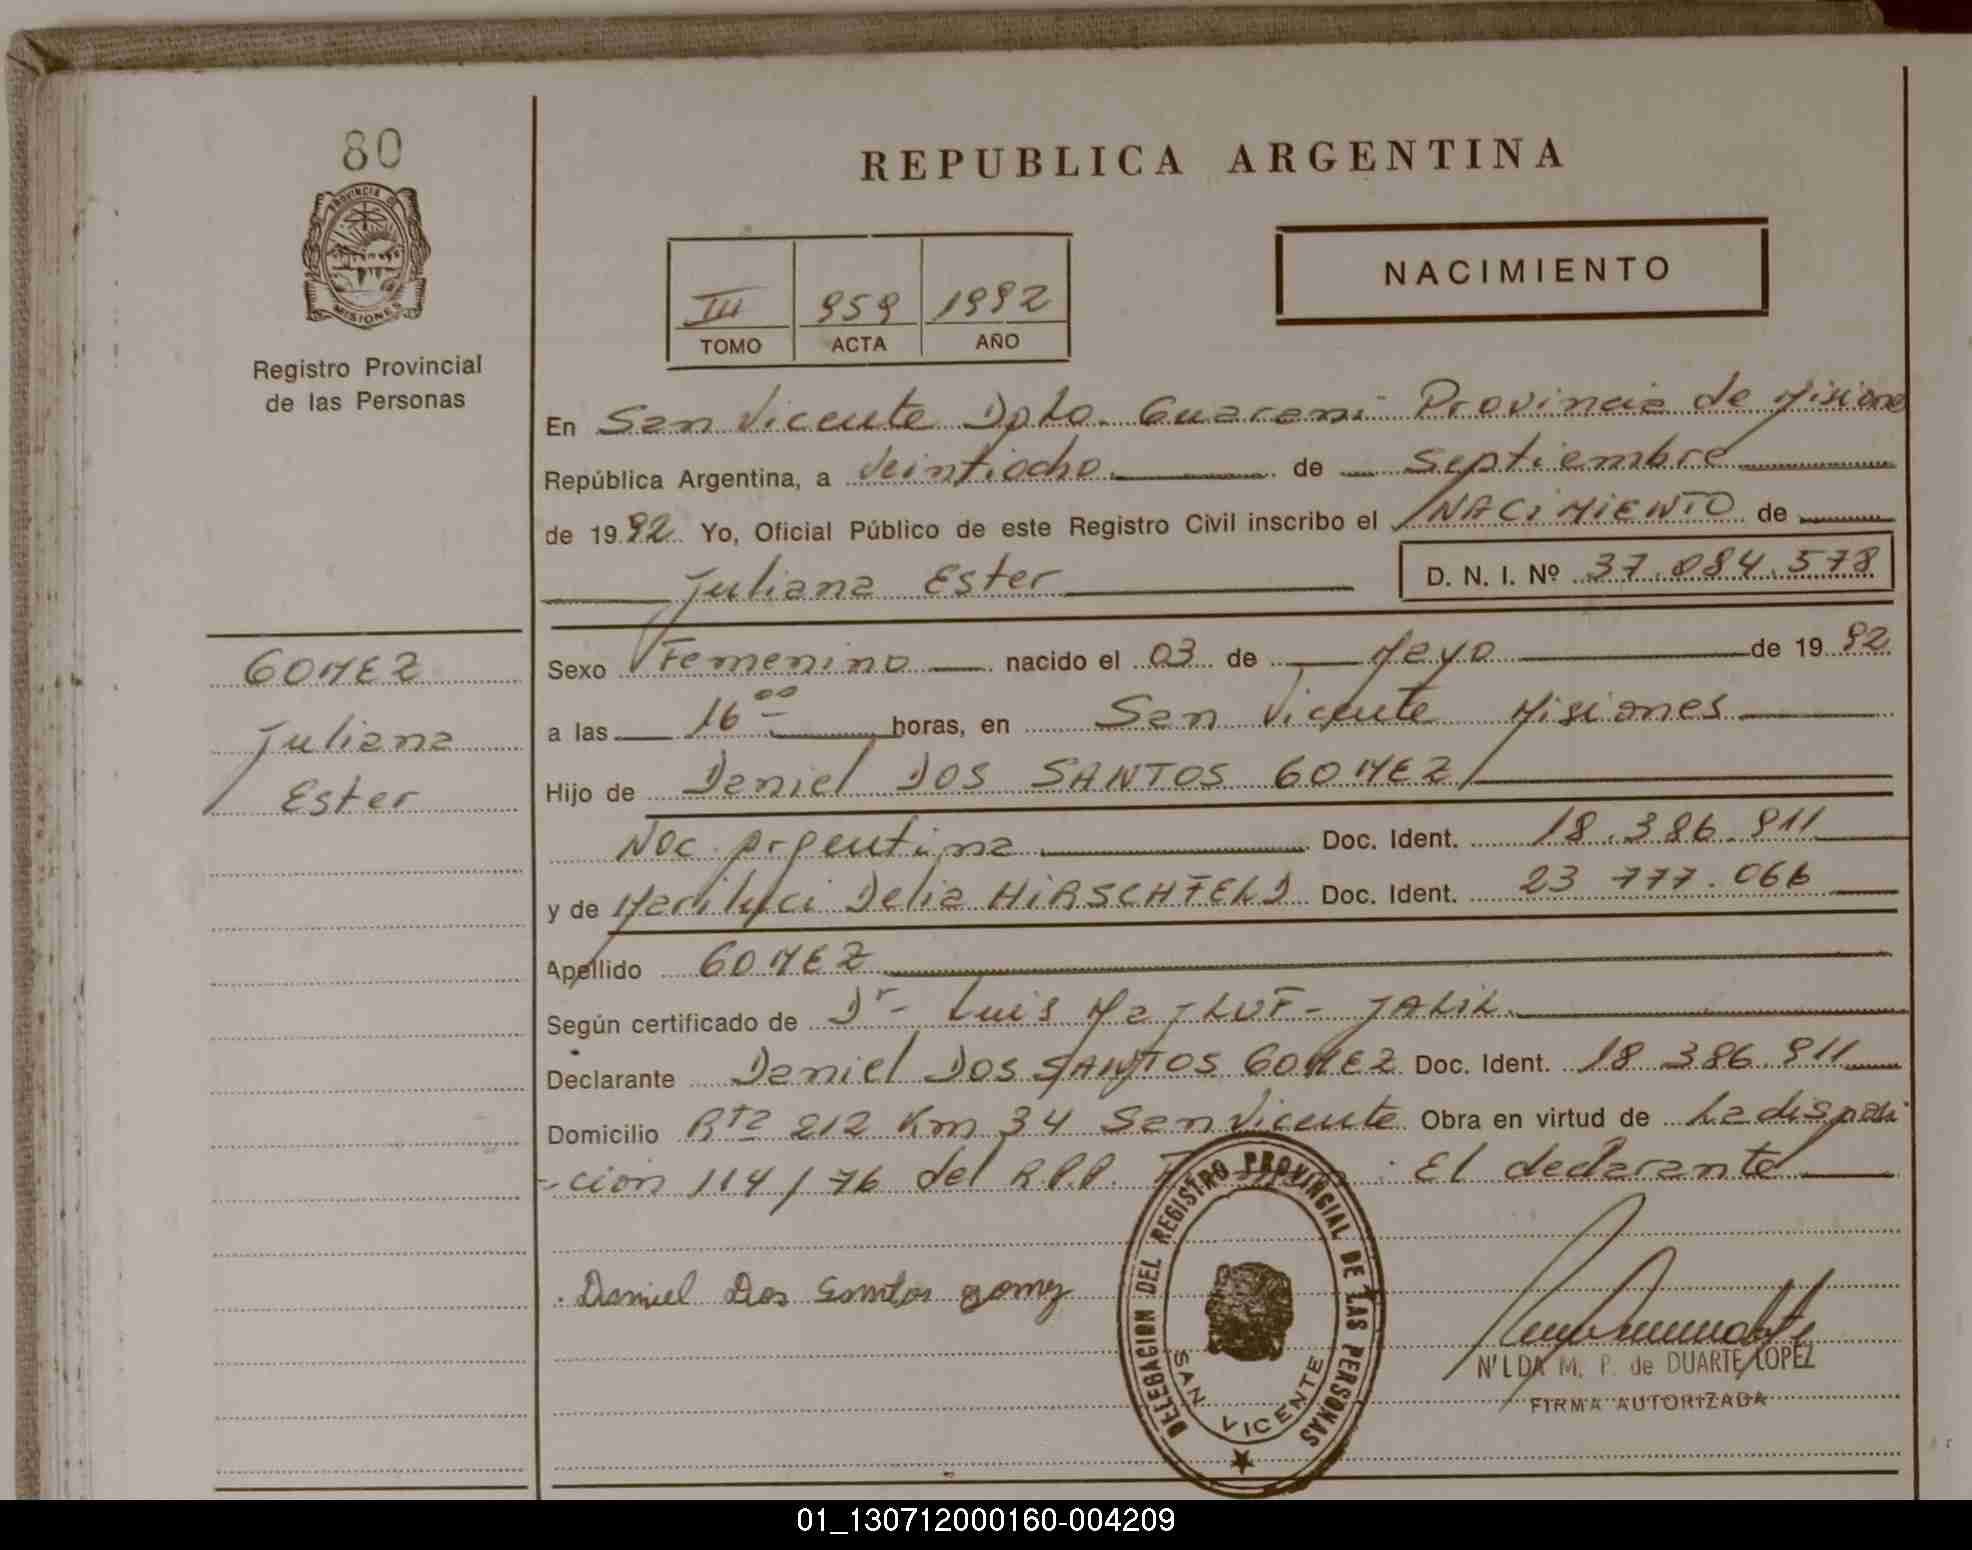 80
PROVINCIA DE
MISIONES
Registro Provincial
de las Personas
GOMEZ
Juliana
Ester
REPUBLICA ARGENTINA
III 959 1992
TOMO ACTA AÑO
NACIMIENTO
En San Vicente Dpto. Guarani Provincia de Misiones
República Argentina, a Veintiocho de Septiembre
de 1992 Yo, Oficial Público de este Registro Civil inscribo el NACIMIENTO de
Juliana Ester D. N. I. Nº 37.084.578
Sexo Femenino nacido el 03 de Mayo de 1992
a las 16 00 horas, en San Vicente Misiones
Hijo de Daniel DOS SANTOS GOMEZ
Nac. Argentina Doc. Ident. 18.386.911
y de Mariluci Delia HIRSCHFELD Doc. Ident. 23 777.066
Apellido GOMEZ
Según certificado de Dr- Luis MajLUF- JALIL
Declarante Daniel DOS SANTOS GOMEZ Doc. Ident. 18 386 911
Domicilio Rta 212 Km 34 San Vicente Obra en virtud de La disposi
-cion 114/76 del R.P.P. : El declarante
Daniel Dos Santos gomez
DELEGACION DEL REGISTRO PROVINCIAL DE LAS PERSONAS
SAN VICENTE
NILDA M. P. de DUARTE LOPEZ
FIRMA AUTORIZADA
01_130712000160-004209